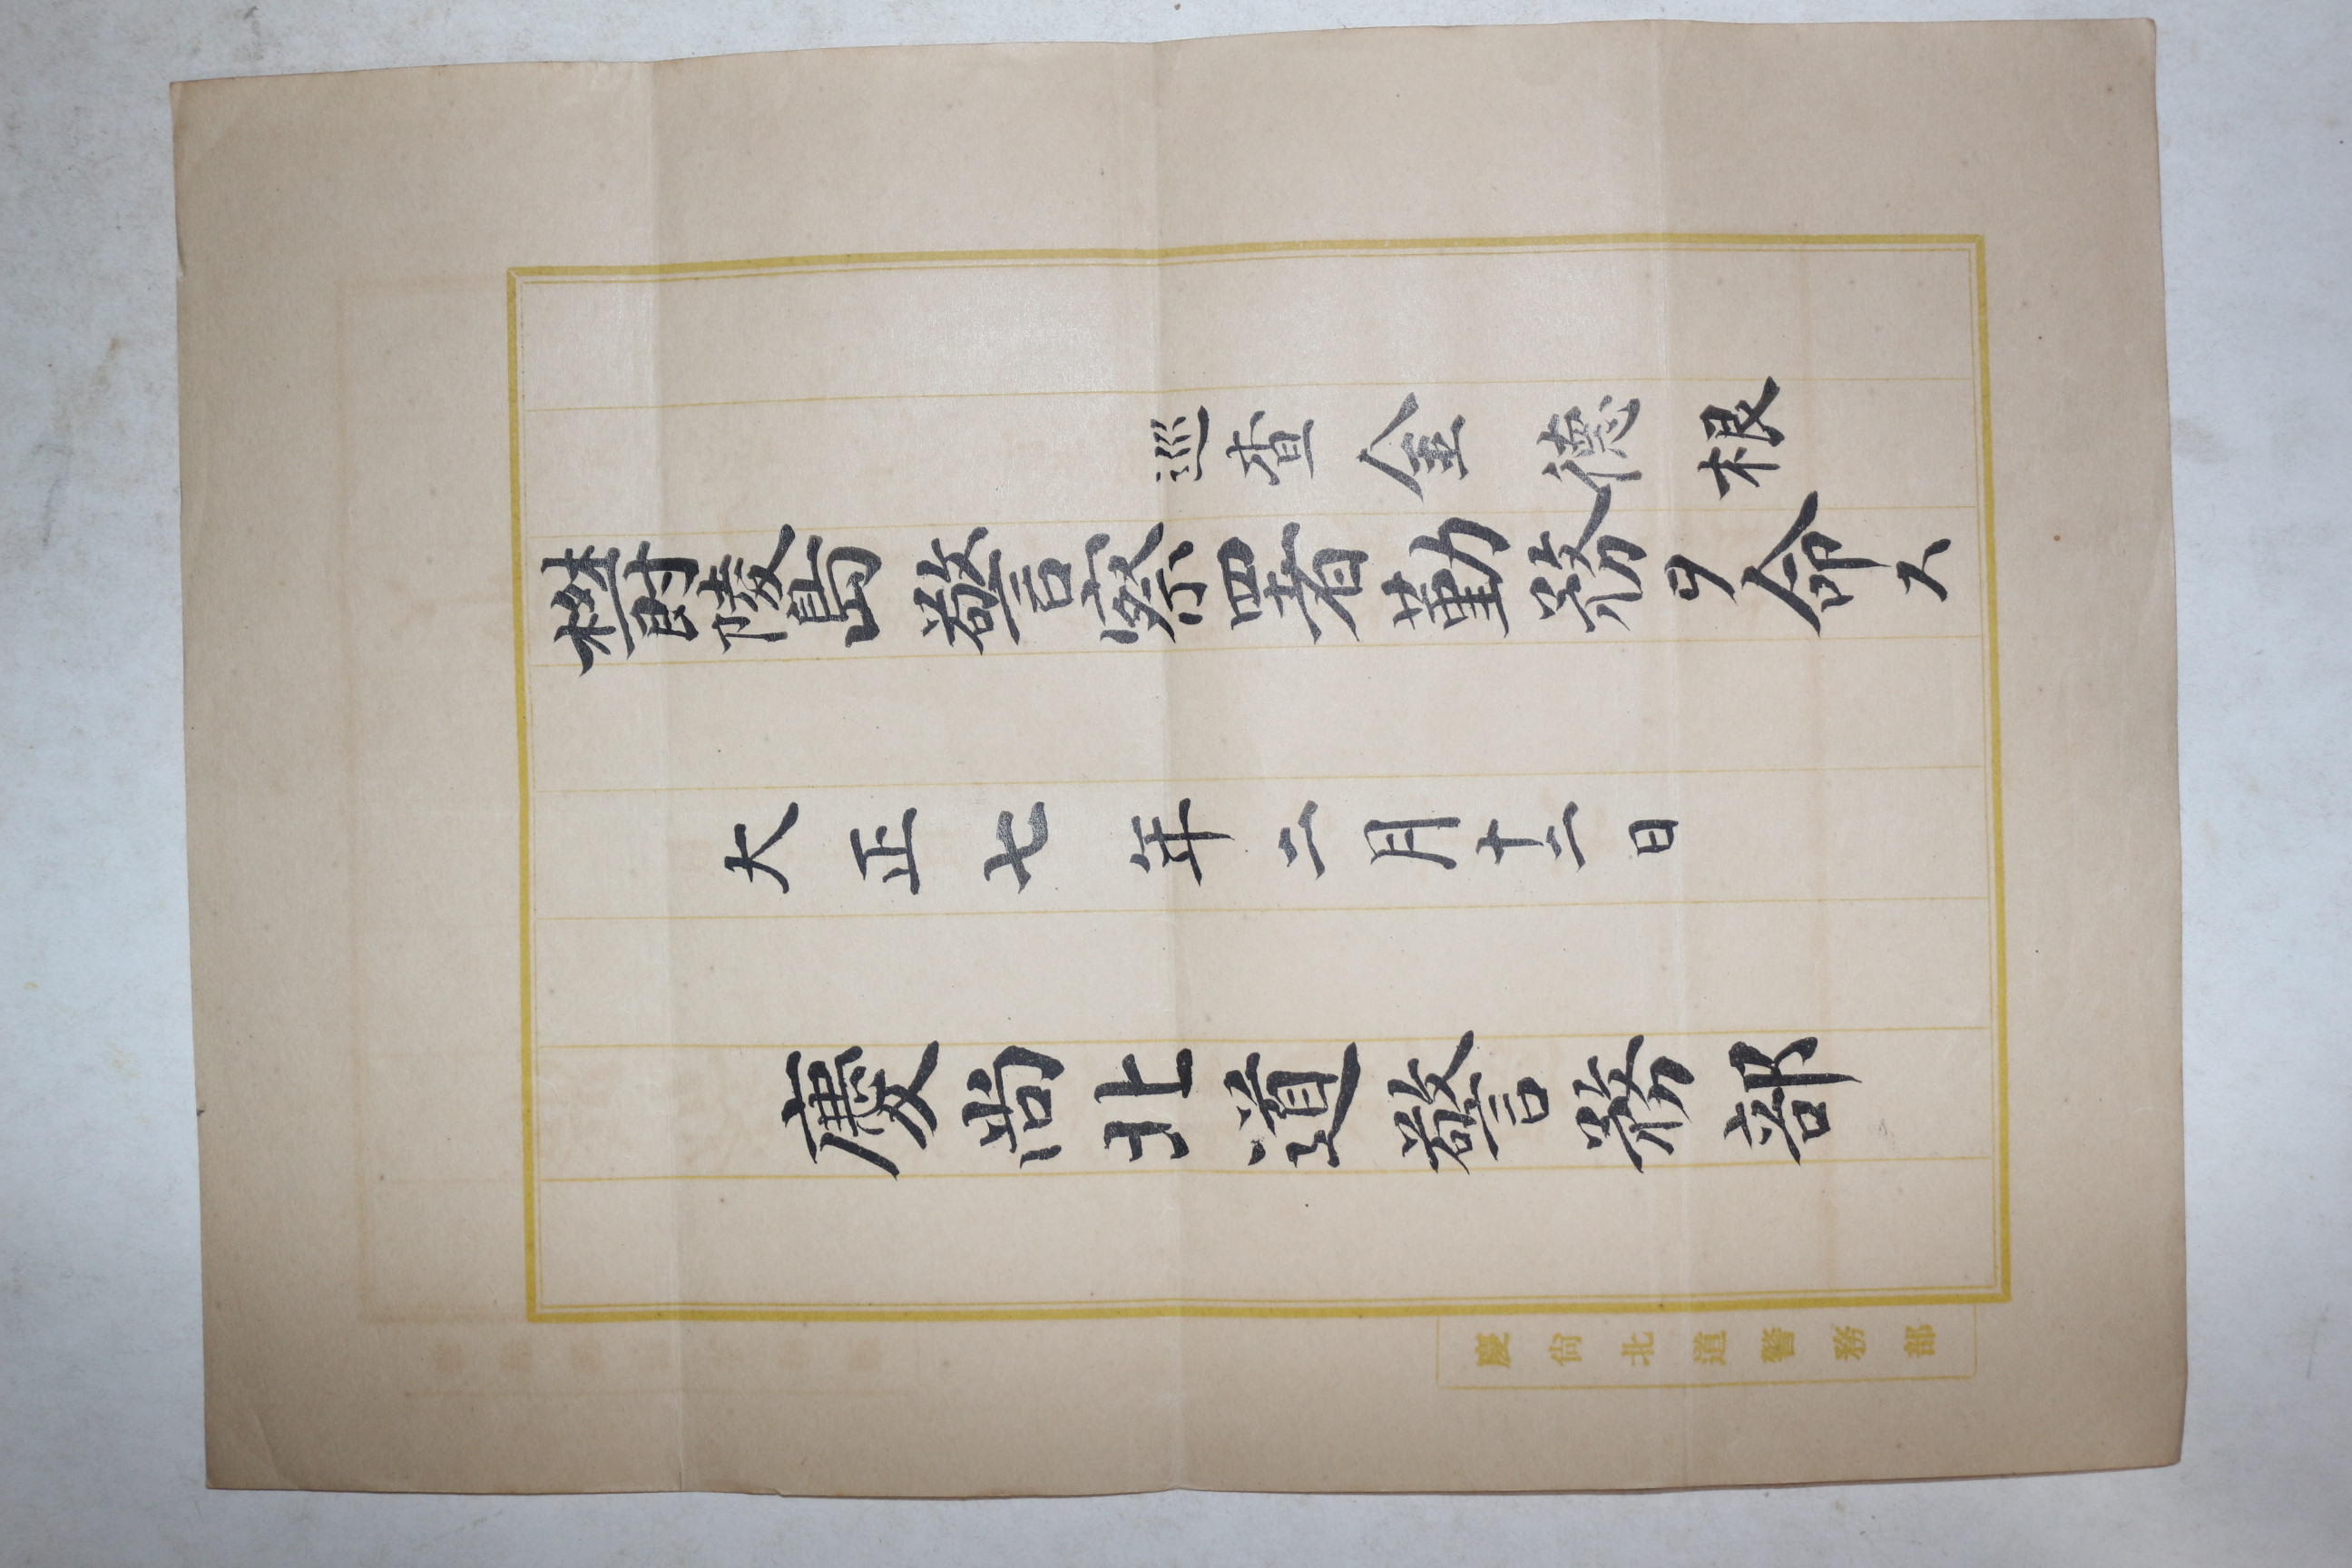 巡査金德根
欝陵島警察署勤務ヲ命ス
大正七年二月十二日
慶尚北道警務部
慶尚北道警務部